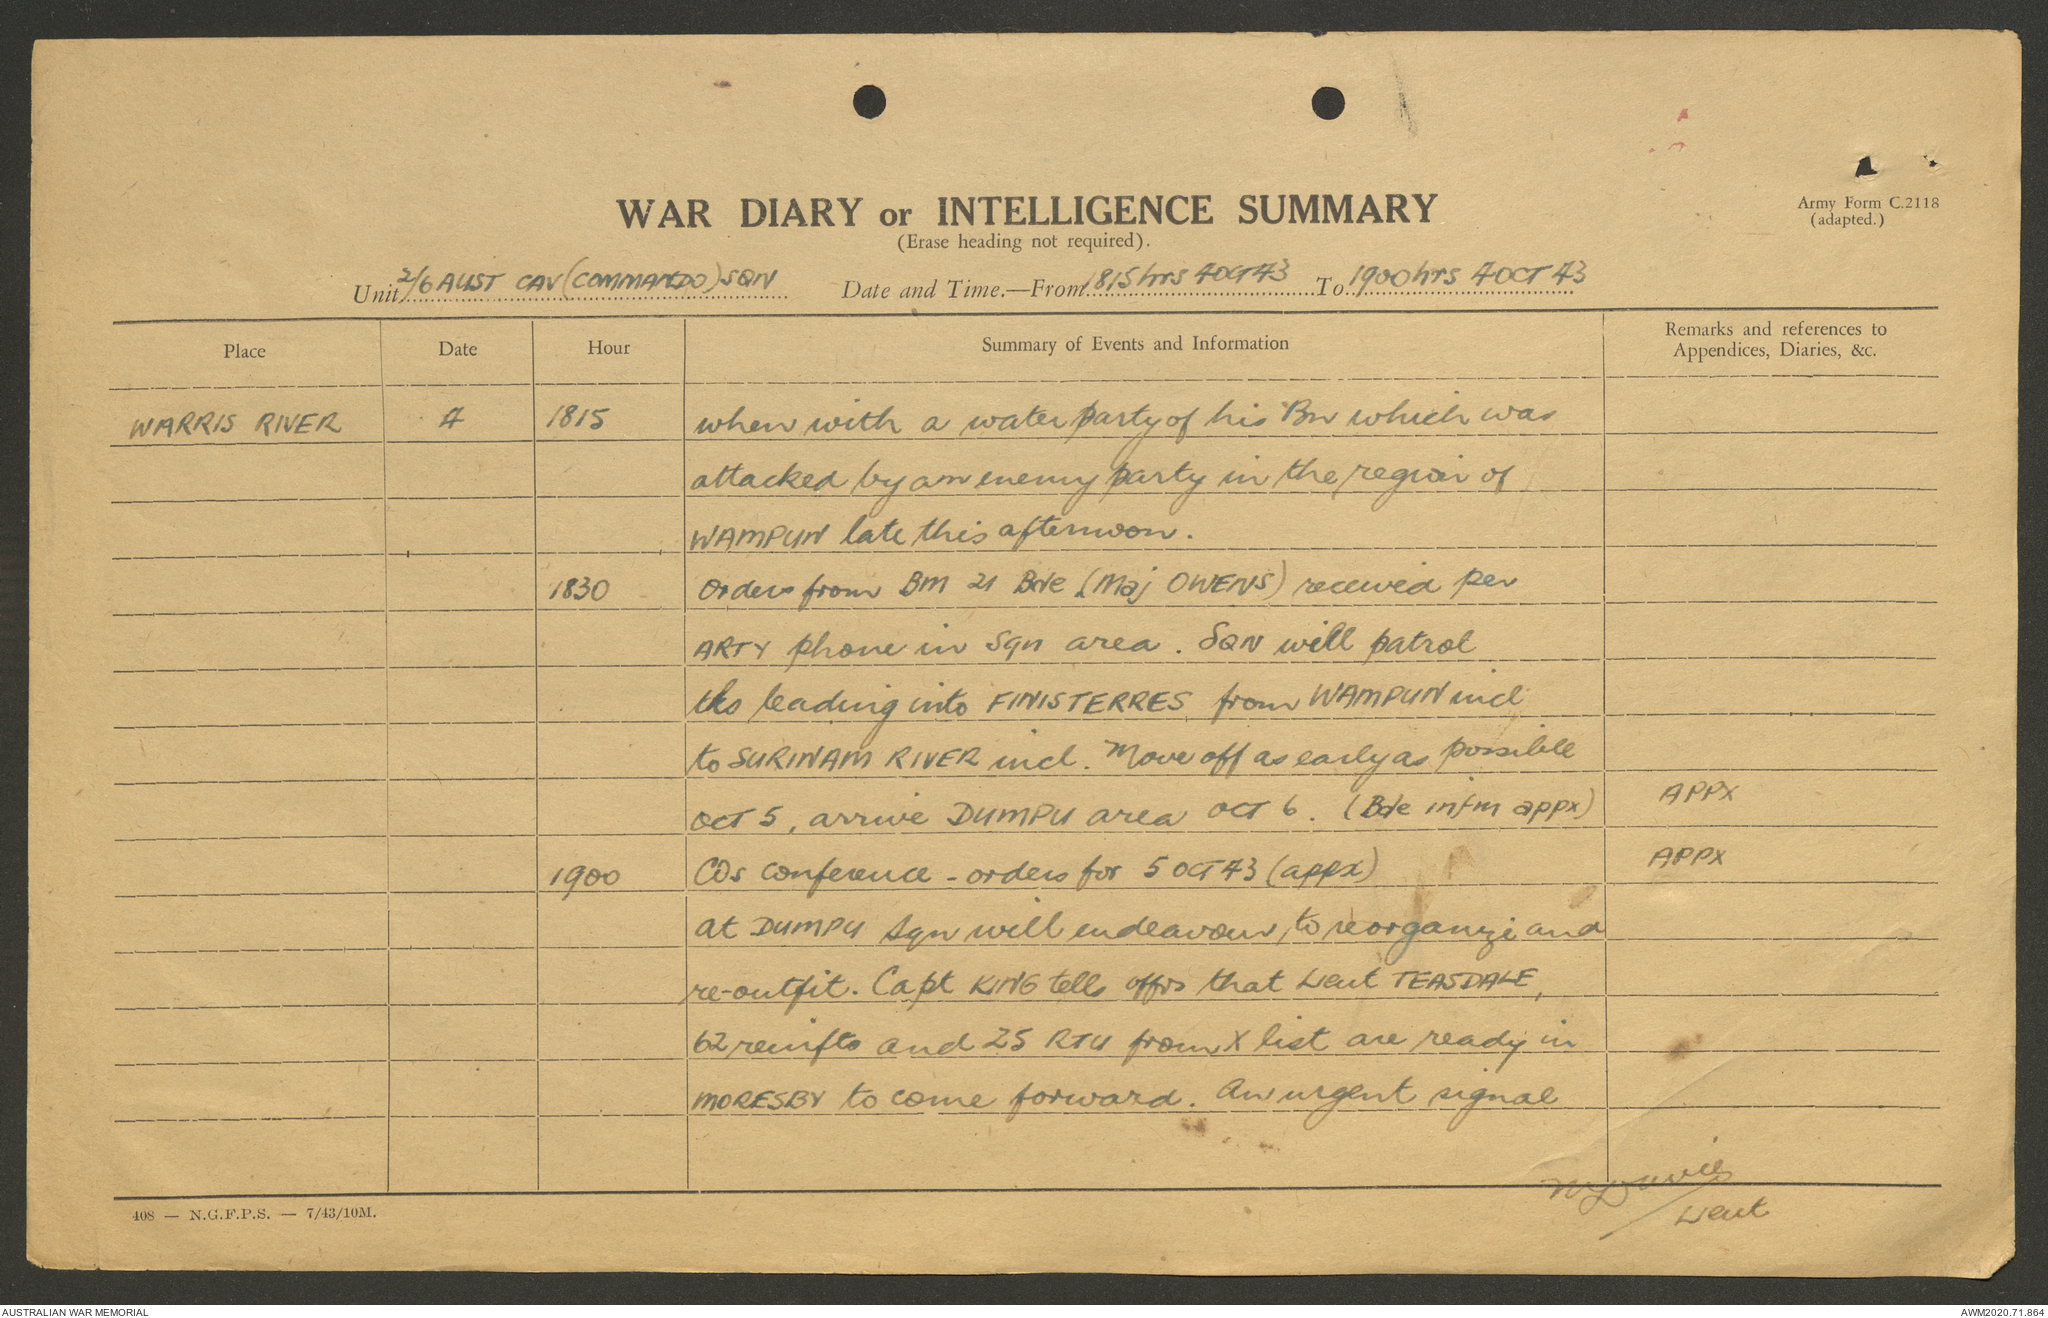 WAR DIARY or INTELLIGENCE SUMMARY
Army Form C.2118
(Erase heading not required).
(adapted.)
Unit 2/6 AUST CAV (COMMANDO) SQN Date and Time.—From 1815 hrs 4 OCT 43 To 1900 hrs 4 OCT 43
Place Date Hour Summary of Events and Information Remarks and references to
Appendices, Diaries, &c.
WARRIS RIVER 4 1815 when with a water party of his Bn which was
attacked by an enemy party in the region of
WAMPUN late this afternoon.
1830 Orders from BM 21 Bde (Maj OWENS) received per
ARTY phone in Sqn area. SQN will patrol
tks leading into FINISTERRES from WAMPUN incl
to SURINAM RIVER incl. Move off as early as possible
OCT 5, arrive DUMPU area OCT 6. (Bde infm appx) APPX
1900 COs conference - orders for 5 OCT 43 (appx) APPX
at DUMPU Sqn will endeavour to reorganize and
re-outfit. Capt KING tells offrs that Lieut TEASDALE,
62 reinfts and 25 RTU from X list are ready in
MORESBY to come forward. An urgent signal
Lieut
408 — N.G.F.P.S. — 7/43/10M.
AUSTRALIAN WAR MEMORIAL
AWM2020.71.864